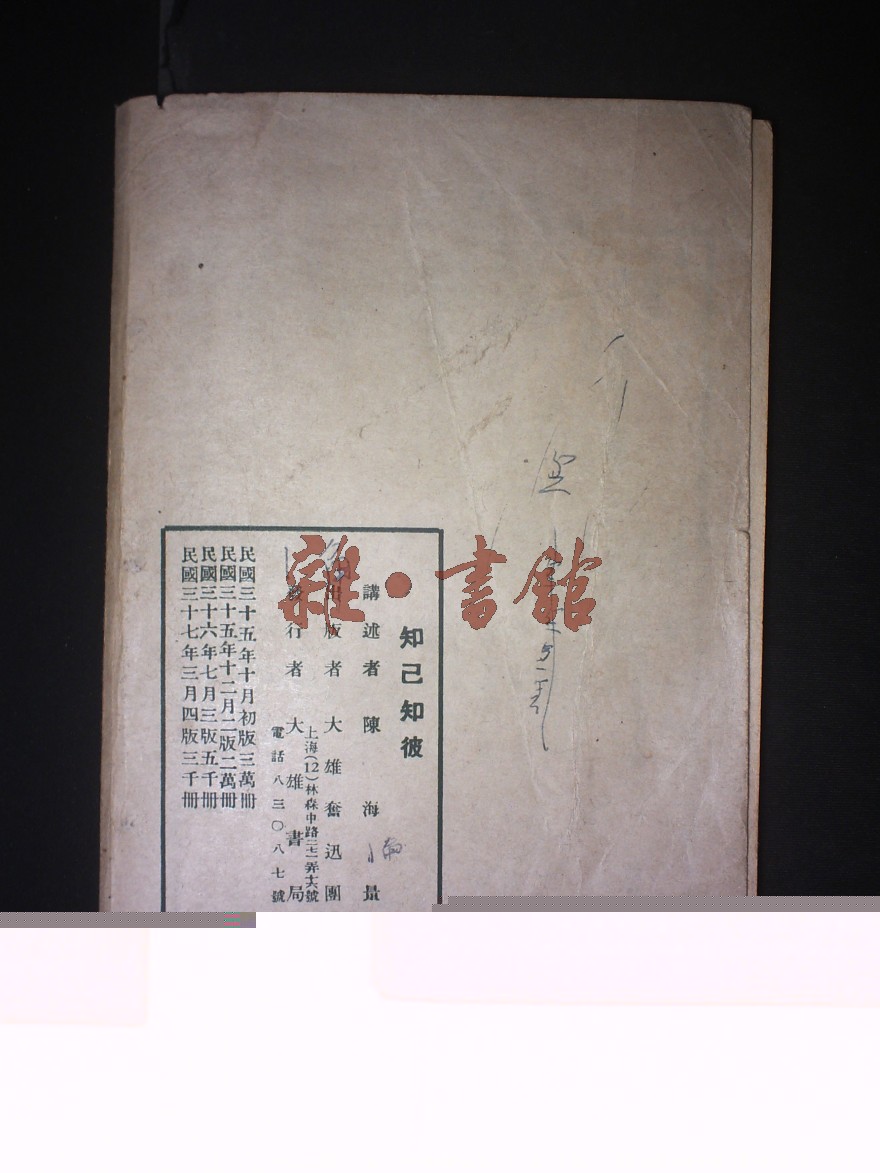 知己知彼
講述者 陳海量
出版者 大雄奮迅團
上海(12)林森中路
發行者 大雄書局
電話八三〇八七號
民國三十五年十月初版三萬冊
民國三十五年十二月二版二萬冊
民國三十六年七月三版五千冊
民國三十七年三月四版三千冊
雜·書館